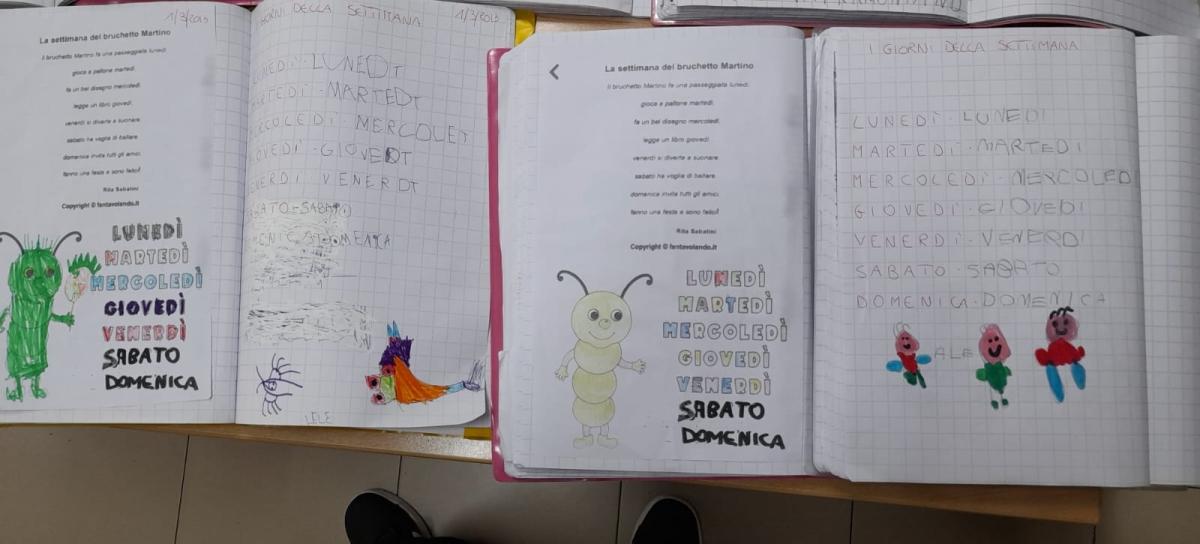 1/3/2013
La settimana del bruchetto Martino
Il bruchetto Martino fa una passeggiata lunedì
gioca a pallone martedì
fa un bel disegno mercoledì
legge un libro giovedì
venerdì si diverte a suonare
sabato ha voglia di ballare
domenica invita tutti gli amici
fanno una festa e sono felici!
Rita Sabatini
Copyright © fantavolando.it
LUNEDÌ
MARTEDÌ
MERCOLEDÌ
GIOVEDÌ
VENERDÌ
SABATO
DOMENICA
GIORNI DELLA SETTIMANA
LUNEDI
MARTEDI
MERCOLEDI
GIOVEDI
VENERDI
LELE
La settimana del bruchetto Martino
Il bruchetto Martino fa una passeggiata lunedì,
gioca a pallone martedì,
fa un bel disegno mercoledì,
legge un libro giovedì
venerdì si diverte a suonare
sabato ha voglia di ballare
domenica invita tutti gli amici
fanno una festa e sono felici!
Rita Sabatini
Copyright © fantavolando.it
LUNEDÌ
MARTEDÌ
MERCOLEDÌ
GIOVEDÌ
VENERDÌ
SABATO
DOMENICA
I GIORNI DELLA SETTIMANA
LUNEDÌ · LUNEDI
MARTEDÌ · MARTEDI
MERCOLEDÌ · MERCOLEDI
GIOVEDÌ · GIOVEDI
VENERDÌ · VENERDI
SABATO · SABATO
DOMENICA · DOMENICA
ALE